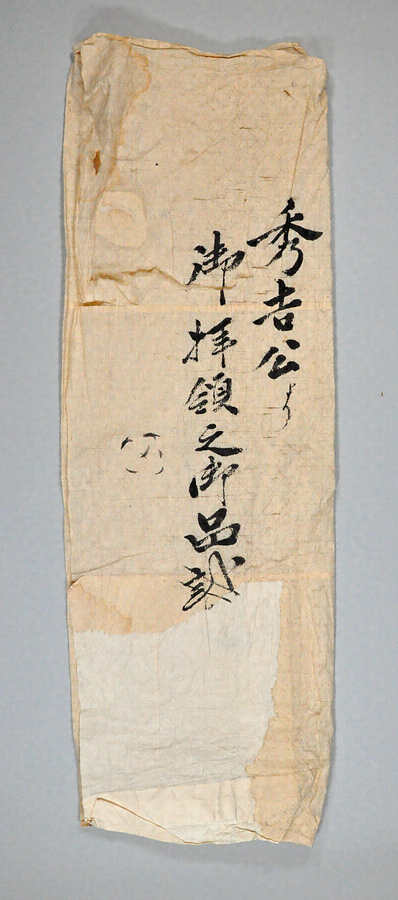 秀吉公より
御拝領之御品